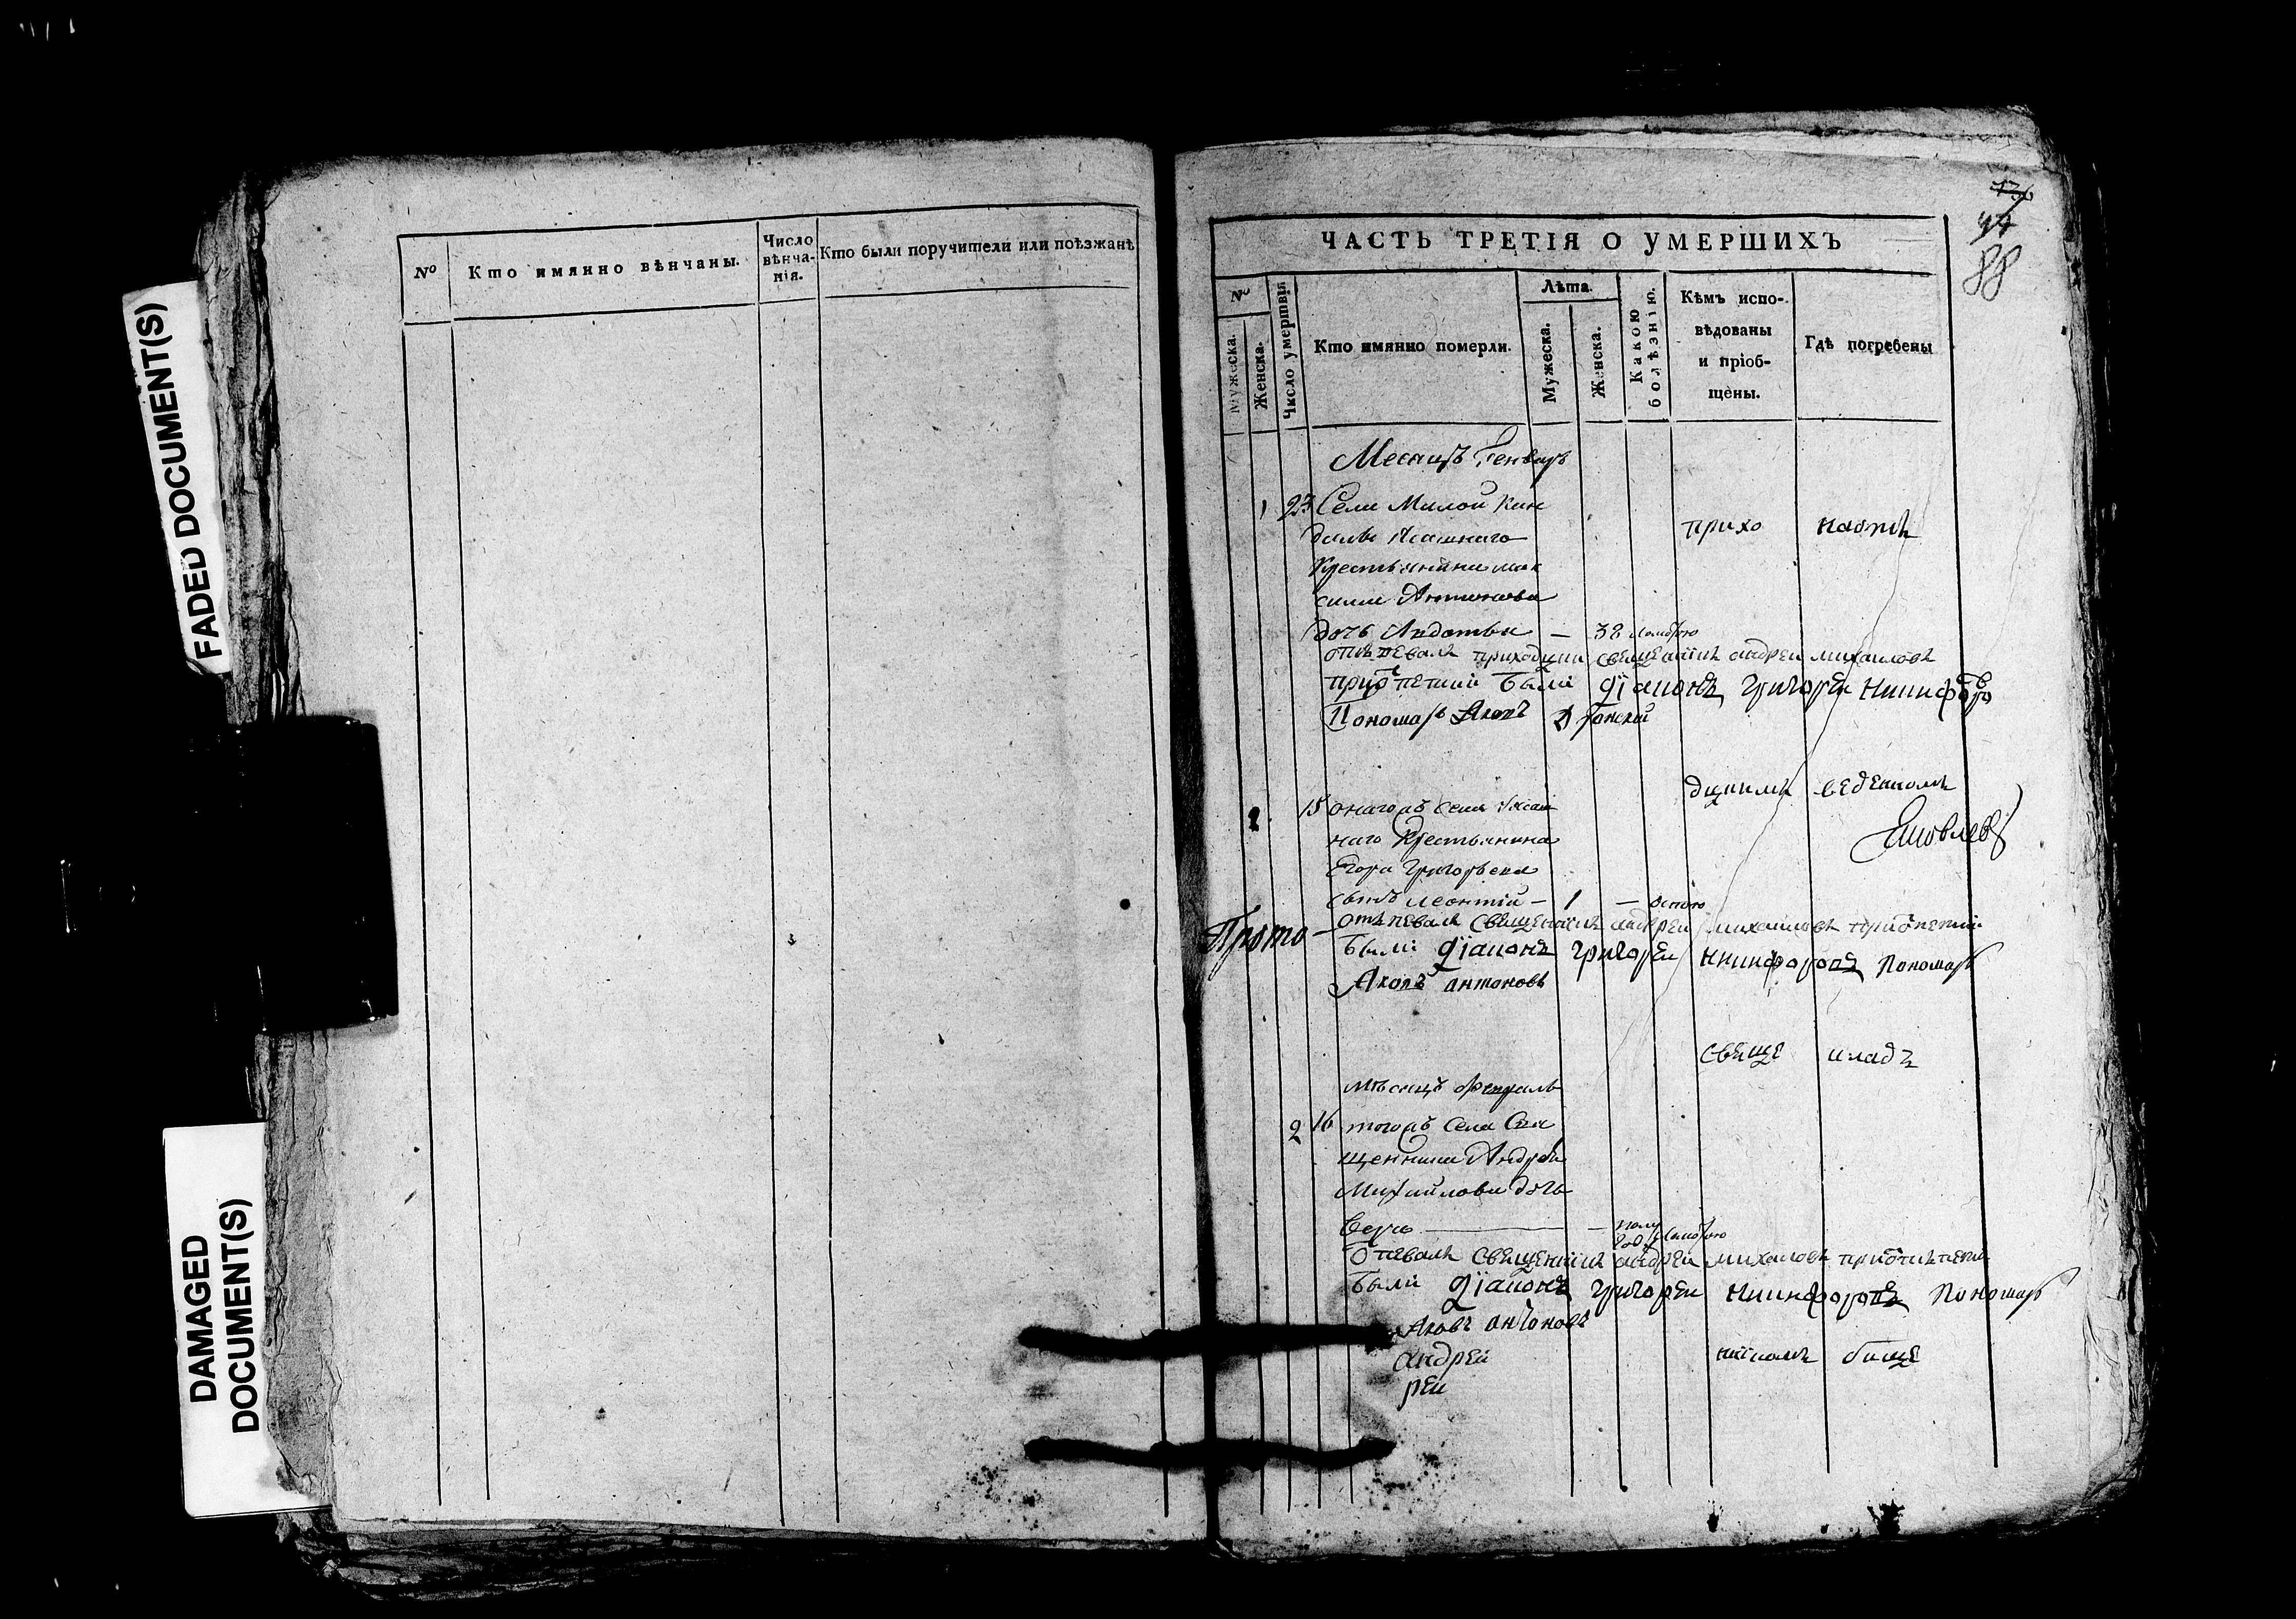 FADED DOCUMENT(S)
DAMAGED
DOCUMENT(S)
№
Кто имянно вѣнчаны.
Число
вѣнча-
нія.
Кто были поручители или поѣзжанѣ
88
ЧАСТЬ ТРЕТІЯ О УМЕРШИХЪ
№
Мужеска.
Женска.
Число умертвія
Кто имянно померли.
Лѣта.
Мужеска.
Женска.
Какою
болѣзнію.
Кѣмъ испо-
вѣдованы
и пріоб-
щены.
Гдѣ погребены
Месяцъ Генварь
1 23 Села Малой Кан
далы Ясашнаго прихо
крестьянина мак
сима Антонова
дочь Авдотья — 38
отпевалъ приходцки священникъ андреи михаиловъ
были діаконъ григореи никифоро
Пономарь Яковъ
дцкимъ веденномъ
2 15 онагожъ села Ясаш
наго крестьянина
Егора Григорьева
Яковлевъ
сынъ леонтій — 1 — оспою
Прото —
отпевалъ священникъ андреи михаиловъ
были діаконъ григореи никифоровъ пономарь
Яковъ антоновъ
свяще кладъ
мѣсяцъ февраль
2 16 тогожъ села Свя
щенника Андрея
Михайлова дочь
Вера — полу
года
отпевалъ священникъ андреи михаловъ
были діаконъ григореи никифоровъ Пономарь
Яковъ антоновъ
андреи
реи
никомъ бище